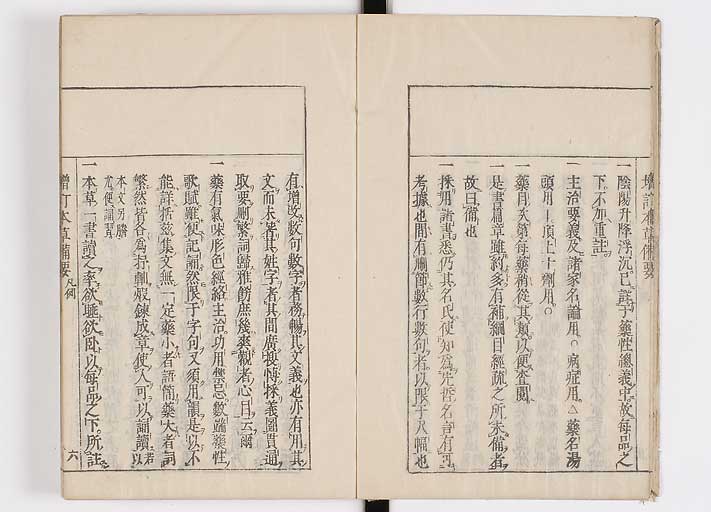 增訂本草備要
一陰陽升降浮沉已詳于藥性總義中故每品之
下不加重註
一主治要義及諸家名論用○病症用△藥名湯
頭用丨頂上十劑用○
一藥目次第每藥稍從其類以便查閱
一是書篇章雖約多有補綱目經疏之所未備者
故曰備也
一採用諸書悉仍其名氏使知為先哲名言有可
考據也間有刪節數行數句者以限于尺幅也
有增改數句數字者務暢其文義也亦有用其
文而未著其姓字者其間廣搜博採義圖貫通
取要刪繁詞歸雅飭庶幾爽觀者心目云爾
一藥有氣味形色經絡主治功用禁忌數端藥性
歌賦雖便記誦然限于字句又須用韻是以不
能詳括茲集文無一定藥小者語簡藥大者詞
繁然皆各為杼軸煅鍊成章使人可以誦讀若以
本文另謄
尤便誦習
一本草一書讀之率欲睡欲臥以每品之下所註
增訂本草備要 凡例 六